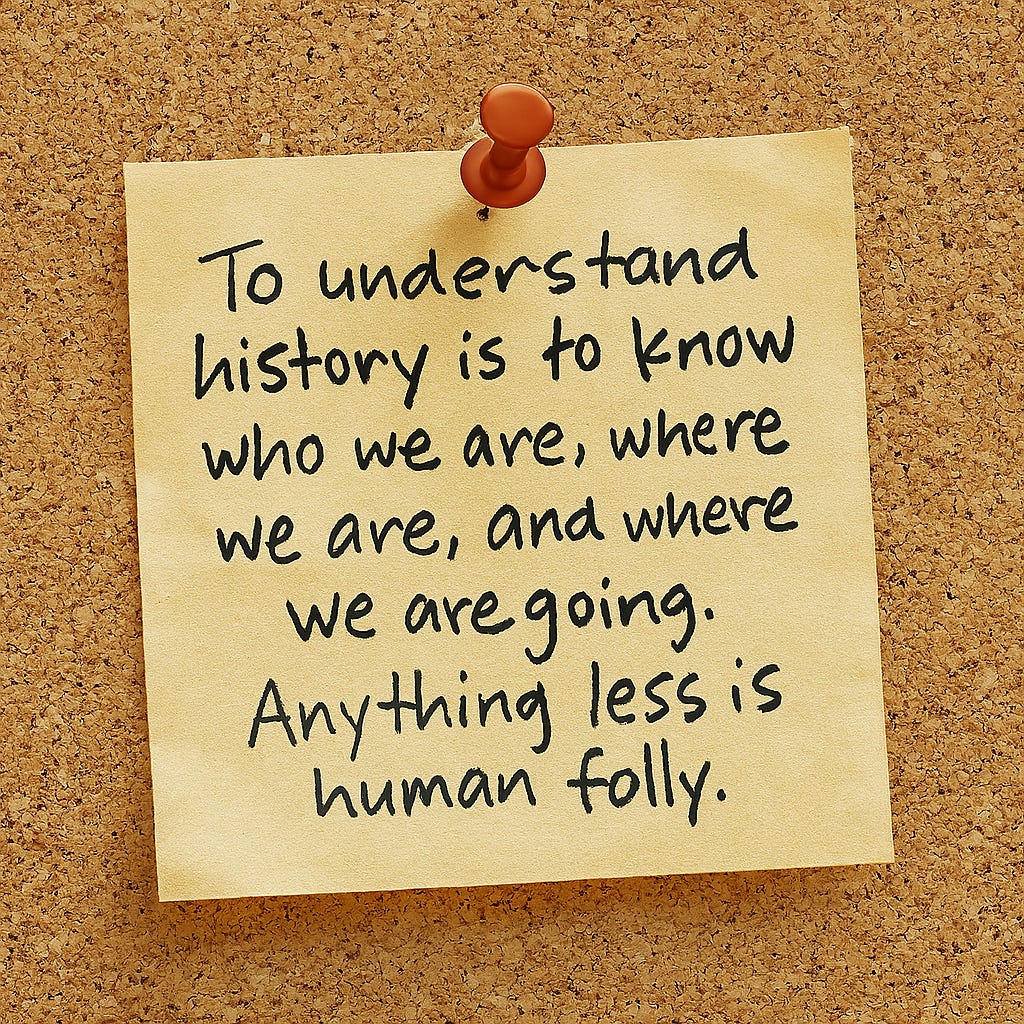 To understand
history is to know
who we are, where
we are, and where
we are going.
Anything less is
human folly.